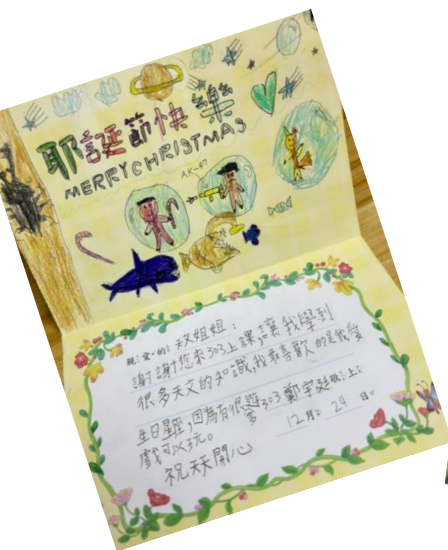 耶誕節快樂
MERRY CHRISTMAS
AK-47
親愛的天文姐姐：
謝謝您來303上課，讓我學到
很多天文的知識，我最喜歡的是我愛
生日星座，因為有很多遊
戲可以玩。
303 鄭宇廷敬上
祝天天開心
12月 24日